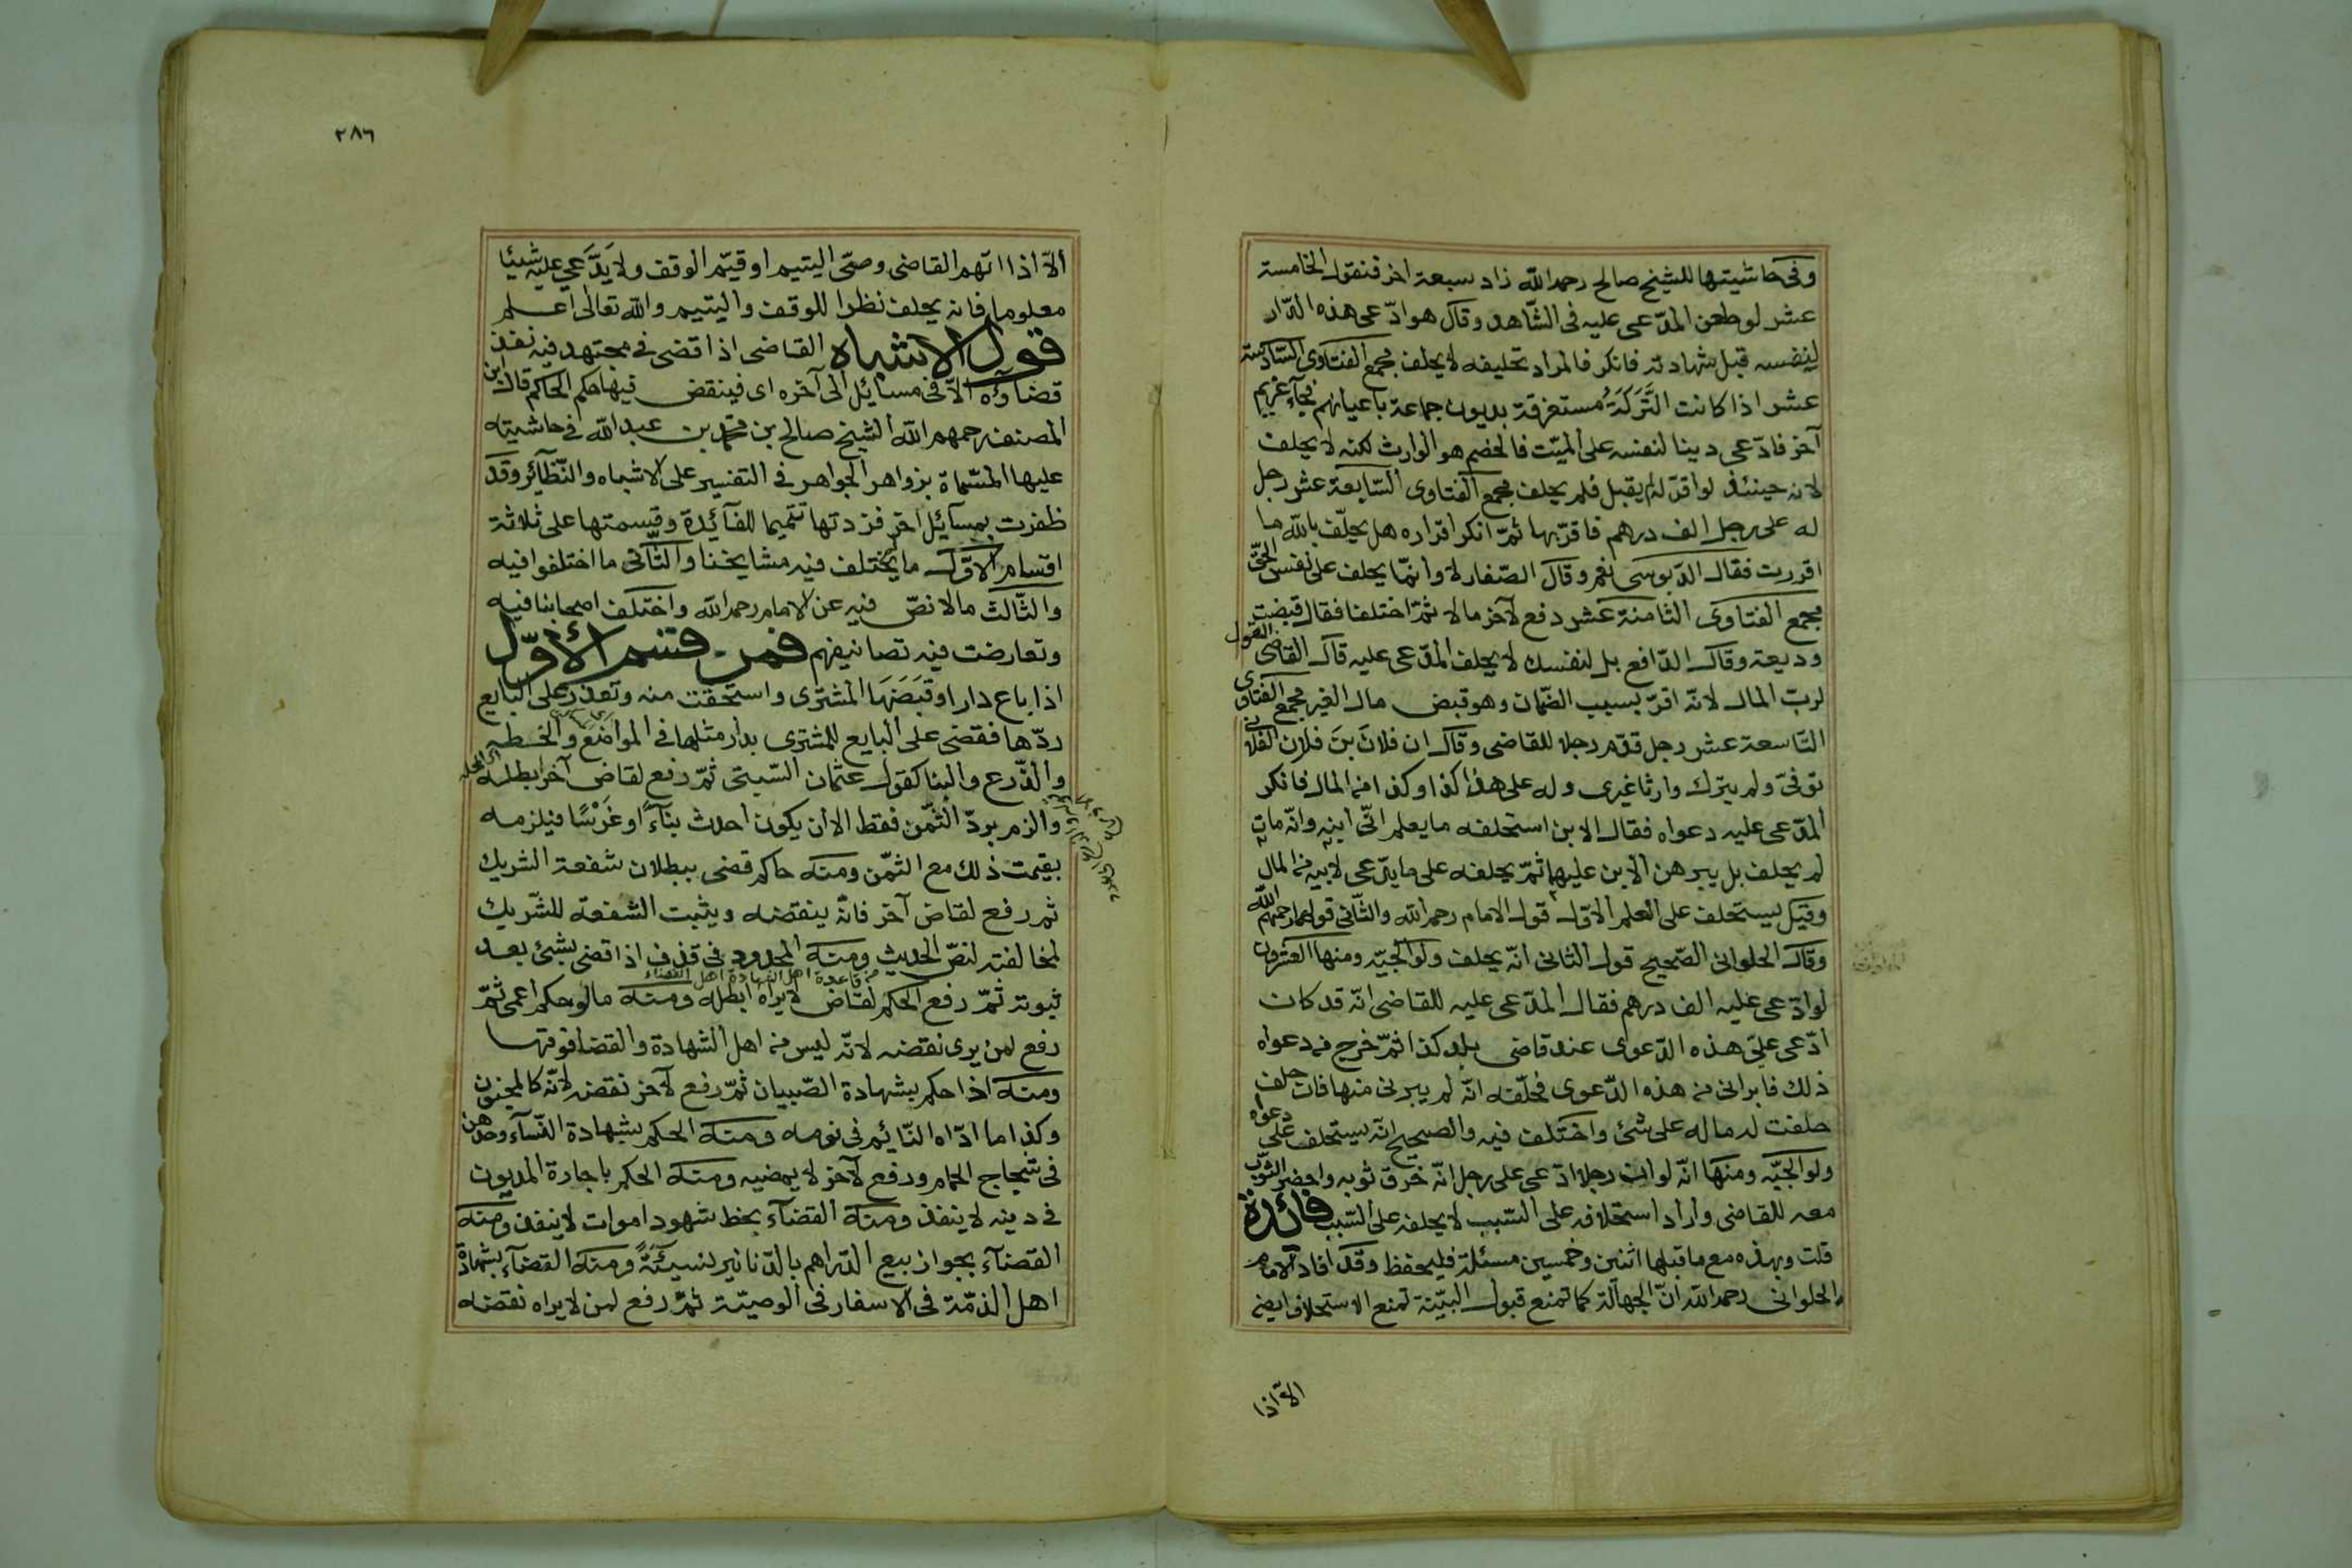 وفى حاشيتها للشيخ صالح رحمه الله زاد سبعة اخر فنقول الخامسة
عشر لو طعن المدّعى عليه فى الشّاهد وقال هو ادّعى هذه الدّار
لنفسه قبل شهادته فانكر فالمراد تحليفه لا يحلف مجمع الفتاوى السّادسة
عشر اذا كانت التَّرَكَةُ مستغرقة بديون جماعة باعيانهم فجآء غريم
آخر فادّعى دينا لنفسه على الميّت فالخصم هو الوارث لكنه لا يحلف
لانه حينئذ لو اقرّ له لم يقبل فلم يحلف مجمع الفتاوى السّابعة عشر رجل
له على رجل الف درهم فاقرّ بها ثمّ انكر اقراره هل يحلّف بالله ما
اقررت فقال الدّبوسى نعم وقال الصّفار لا وانّما يحلف على نفس الحقّ
مجمع الفتاوى الثامنة عشر دفع لآخر مالا ثمّ اختلفا فقال قبضت
وديعة وقال الدّافع بل لنفسك لا يحلف المدّعى عليه قال القاضى القول
لربّ المال لانّه اقرّ بسبب الضّمان وهو قبض مال الغير مجمع الفتاوى
التّاسعة عشر رجل قدّم رجلا للقاضى وقال ان فلانَ بنَ فلان الفلانى
توفّى ولم يترك وارثا غيرى وله على هذا كذا وكذا من المال فانكر
المدّعى عليه دعواه فقال الابن استحلفه ما يعلم انّى ابنه وانّه مات
لم يحلف بل يبرهن الابن عليهما ثمّ يحلفه على ما يدّعى لابيه من المال
وقيل يستحلف على العلم الاوّل قول الامام رحمه الله والثّانى قولهما رحمهم الله
وقال الحلوانى الصّحيح قول الثانى انّه يحلف ولوالجيّه ومنها العشرون
لو ادّعى عليه الف درهم فقال المدّعى عليه للقاضى انّه قد كان
ادّعى علىّ هذه الدّعوى عند قاضى بلد كذا ثمّ خرج من دعواه
ذلك فابرانى من هذه الدّعوى فحلّفه انّه لم يبرنى منها فان حلف
حلفت له ماله على شئ واختلف فيه والصحيح انّه يستحلف على دعواه
ولوالجيّه ومنها انّه لو ان رجلا ادّعى على رجل انّه خرق ثوبه واحضر الثّوب
معه للقاضى واراد استحلافه على السّبب لا يحلفه على السّبب فائدة
قلت وبهذه مع ما قبلها اثنين وخمسين مسئلة فليحفظ وقد افاد الامام
الحلوانى رحمه الله انّ الجهالة كما تمنع قبول البيّنة تمنع الاستحلاف ايضا
الاّ اذا
٢٨٦
الاّ اذا اتهم القاضى وصىّ اليتيم او قيّم الوقف ولا يَدَّعى عليه شيئا
معلوما فانه يحلف نظرا للوقف واليتيم والله تعالى اعلم
قول الاشباه القاضى اذا قضى فى مجتهد فيه نفذ
قضاؤه الاّ فى مسائل الى آخره اى فينقض فيها حكم الحاكم قال ابن
المصنف رحمهم الله الشيخ صالح بن محمد بن عبد الله فى حاشيته
عليها المسّماة بزواهر الجواهر فى التفسير على الاشباه والنّظآئر وقد
ظفرت بمسآئل اخر فزدتها تتميما للفآئدة وقسمتها على ثلاثة
اقسام الاوّل ما لم يختلف فيه مشايخنا والثّانى ما اختلفوا فيه
والثّالث ما لا نصّ فيه عن الامام رحمه الله واختلف اصحابنا فيه
وتعارضت فيه تصانيفهم فمن قسم الأوّل
اذا باع دارا وقَبَضَهَا المشترى واستحقت منه وتعذر على البايع
ردّها فقضى على البايع للمشترى بدار مثلها فى المواضع والخطه
والذّرع والبنا كقول عثمان السّبتى ثمّ رفع لقاض آخر ابطله
والزم بردّ الثّمن فقط الا ان يكون احدث بنآءً او غَرْسًا فيلزمه
بقيمت ذلك مع الثمّن ومنه حاكم قضى ببطلان شفعة الشريك
ثم رفع لقاض آخر فانّه ينقضه ويثبت الشفعة للشّريك
لمخالفته لنصّ الحديث ومنه المحدود فى قذف اذا قضى بشئ بعد
ثبوته ثمّ رفع الحكم لقاض لا يراه ابطله ومنه ما لو حكم اعمى ثمّ
رفع لمن يرى نقضه لانّه ليس من اهل الشهادة والقضا فوقها
ومنه اذا حكم بشهادة الصّبيان ثمّ رفع لآخر نقضه لانّه كالمجنون
وكذا ما ادّاه النّايئم فى نومه ومنه الحكم بشهادة النّسآء وحدهن
فى شجاج الحمام ورفع لآخر لا يمضيه ومنه الحكم باجارة المديون
فى دينه لا ينفذ ومنه القضآء بخط شهود اموات لا ينفذ ومنه
القضآء بجواز بيع الدّراهم بالدّنانير نسيئةً ومنه القضآء بشهادة
اهل الذمّة فى الاسفار فى الوصيّة ثمّ رفع لمن لا يراه نقضه